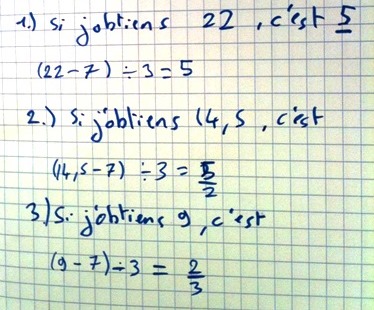 1.) Si j'obtiens 22, c'est 5
(22-7) ÷ 3 = 5
2.) Si j'obtiens 14,5, c'est
(14,5-7) ÷ 3 = 5/2
3) Si j'obtiens 9, c'est
(9-7) ÷ 3 = 2/3